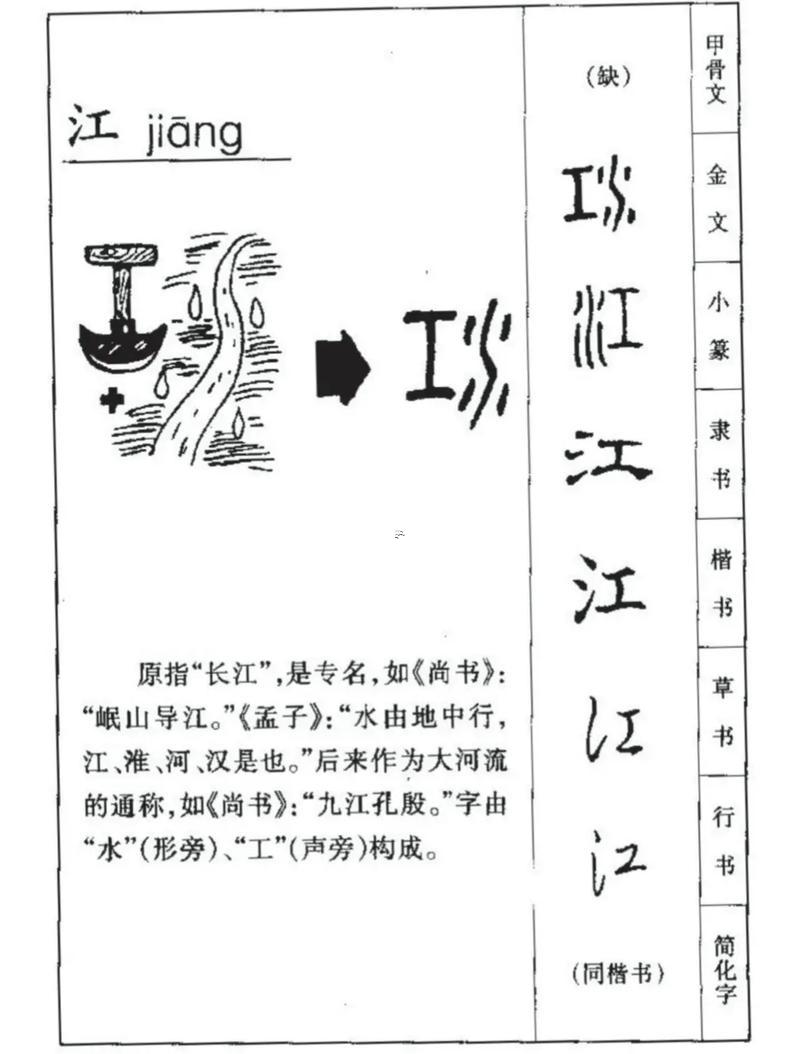 江 jiāng
原指“长江”，是专名，如《尚书》：
“岷山导江。”《孟子》：“水由地中行，
江、淮、河、汉是也。”后来作为大河流
的通称，如《尚书》：“九江孔殷。”字由
“水”（形旁）、“工”（声旁）构成。
（缺） 甲骨文
江 金文
江 小篆
江 隶书
江 楷书
江 草书
江 行书
（同楷书） 简化字